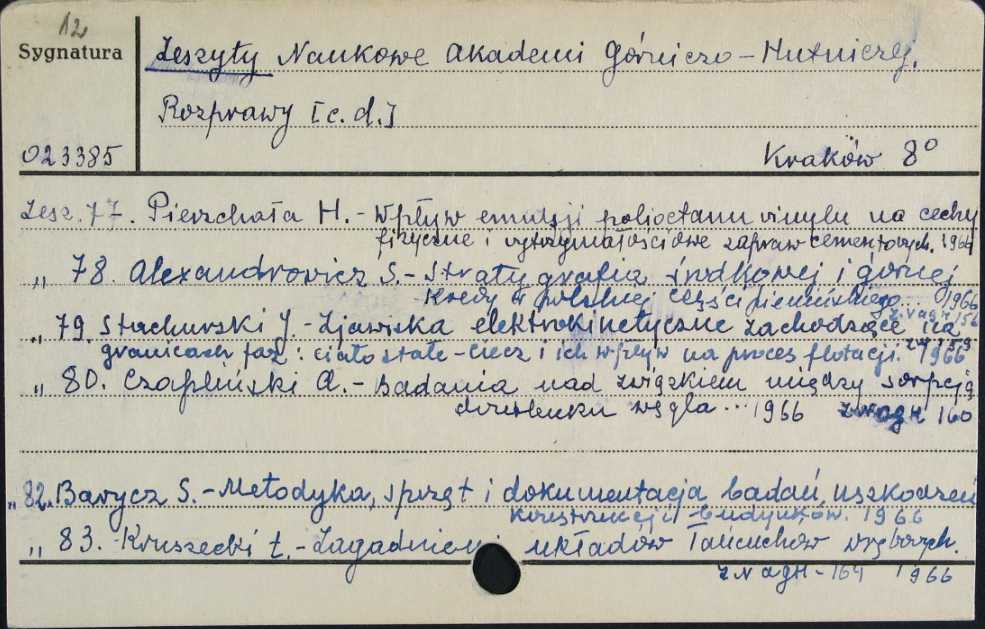 12
Sygnatura
Zeszyty Naukowe Akademi Górniczo-Hutniczej.
Rozprawy [c.d.]
023385
Kraków 8°
Zesz. 77. Pierzchała H. - Wpływ emulsji polioctanu vinylu na cechy
fizyczne i wytrzymałościowe zapraw cementowych. 1964
„ 78. Alexandrowicz S. - Stratygrafia środkowej i górnej
kredy w polskiej części 1966
ZNAGH 156
„ 79. Stachurski J. - Zjawiska elektrokinetyczne zachodzące na
granicach faz: ciało stałe - ciecz i ich wpływ na proces flotacji. 1966
„ 80. Czapliński A. - Badania nad związkiem między sorpcją
dwutlenku węgla... 1966 ZNAGH 160
„ 82. Barycz S. - Metodyka, sprzęt i dokumentacja badań, uszkodzeń
konstrukcji budynków. 1966
„ 83. Kruszecki L. - Zagadnieni układów łańcuchów wrębowych.
ZNAGH - 164 1966